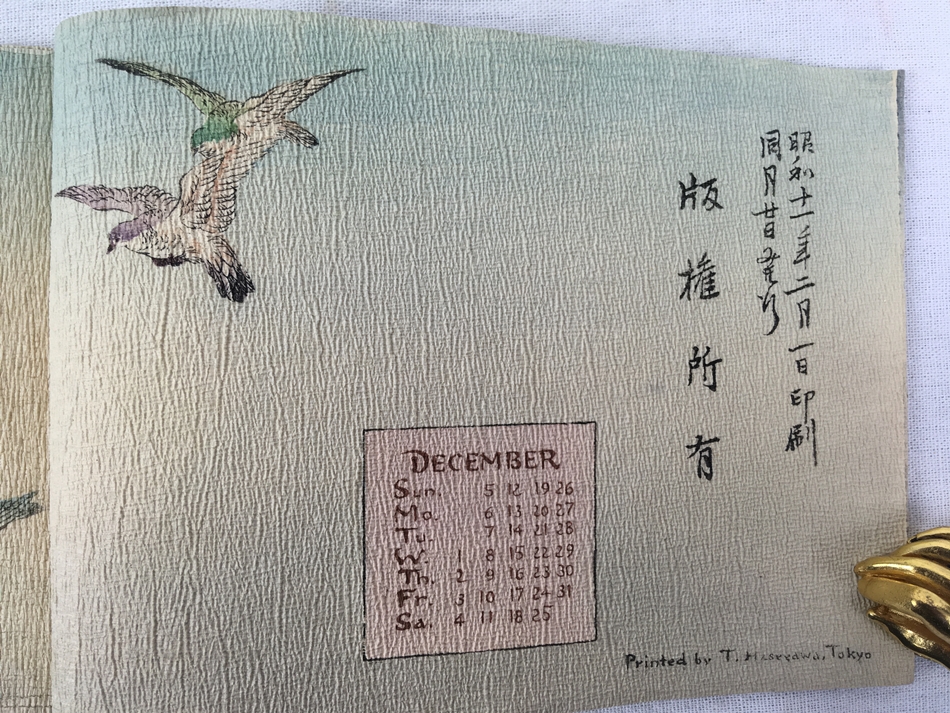 昭和十一年二月一日印刷
同月廿日發行
版權所有
DECEMBER
Sun. 5 12 19 26
Mo. 6 13 20 27
Tu. 7 14 21 28
W. 1 8 15 22 29
Th. 2 9 16 23 30
Fr. 3 10 17 24 31
Sa. 4 11 18 25
Printed by T. Hasegawa, Tokyo